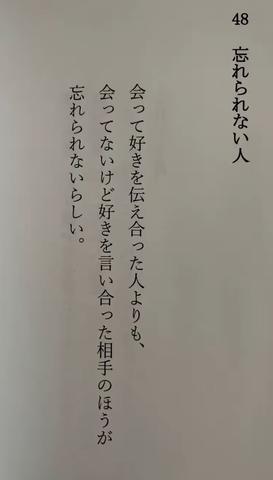 48 忘れられない人
会って好きを伝え合った人よりも、
会ってないけど好きを言い合った相手のほうが
忘れられないらしい。